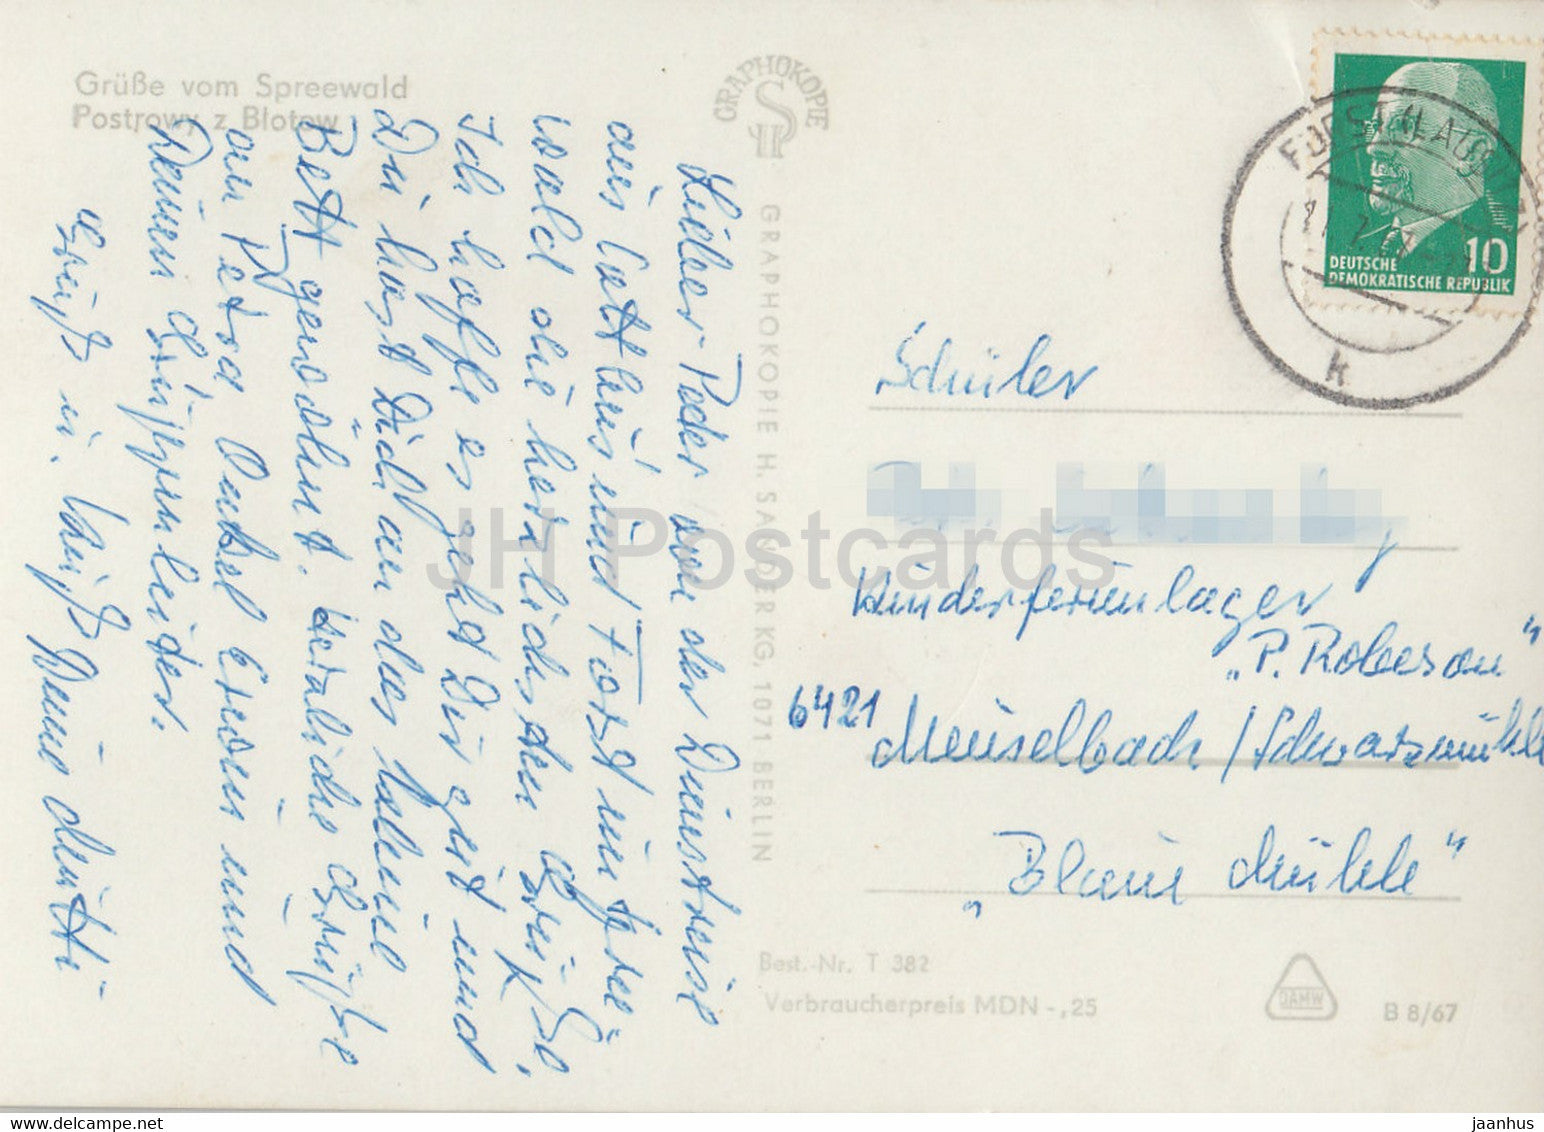 Grüße vom Spreewald
Postrowy z Błotow
GRAPHOKOPIE
GRAPHOKOPIE H. SANDER KG, 1071 BERLIN
Lieber Peter von der Dienstreise
aus Cottbus und Forst im Spree-
wald die herzlichsten Grüße.
Ich hoffe es geht Dir gut und
Du hast Dich an das kleine
Bett gewöhnt. Herzliche Grüße
an Petra Onkel Erwin und
Deinen Gruppenleiter.
Gruß u. Kuß Deine Mutti
DEUTSCHE
DEMOKRATISCHE REPUBLIK
10
FORST (LAUSITZ)
k
Schüler
Kinderferienlager
„P. Robeson"
6421
Meuselbach/Schwarzmühle
„Blaue Mühle"
Best.-Nr. T 382
Verbraucherpreis MDN -,25
DAMW
B 8/67
JH Postcards
www.delcampe.net
jaanhus